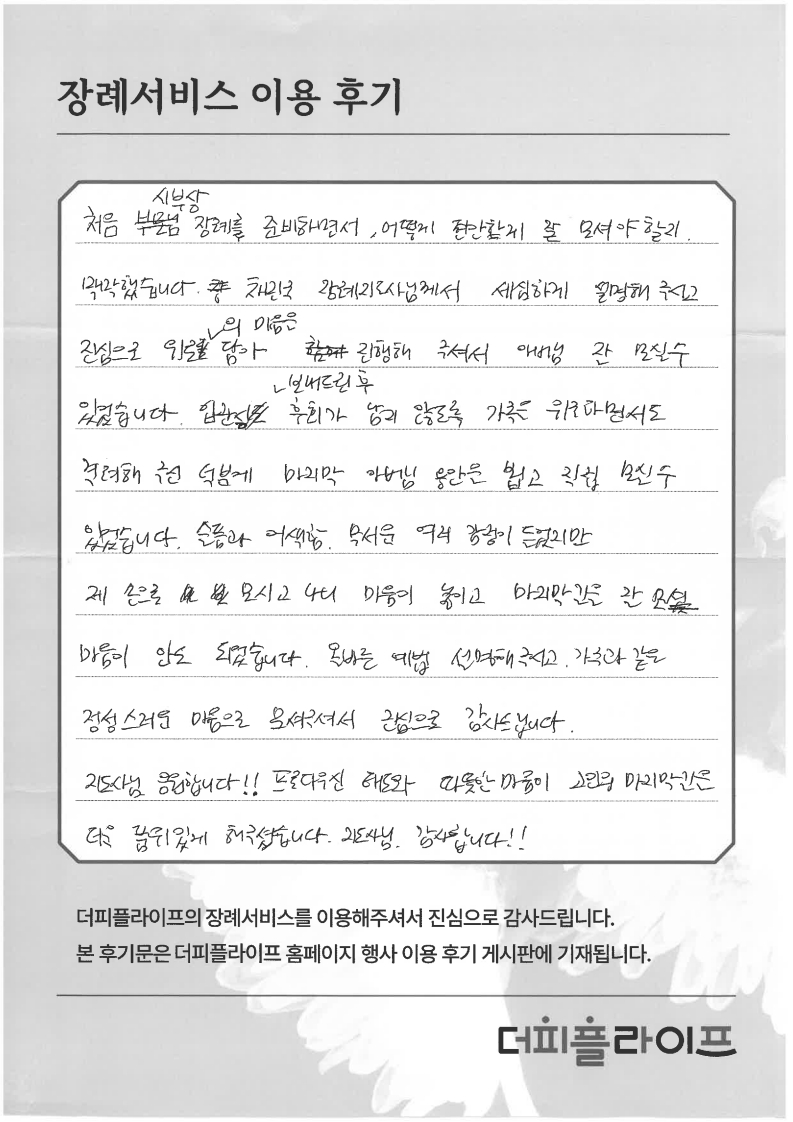 장례서비스 이용 후기
시부상
처음 부모님 장례를 준비하면서, 어떻게 편안할게 잘 모셔야 할지
막막했습니다. 차진국 장례지도사님께서 세심하게 설명해 주시고
의 마음은
진심으로 위로를 담아 함께 진행해 주셔서 아버님 잘 모실 수
보내드린 후
있었습니다. 입관식도 후회가 남지 않도록 가족은 위로하면서도
독려해 주신 덕분에 마지막 아버님 용안은 뵙고 직접 모실 수
있었습니다. 슬픔과 어색함, 무서운 여러 감정이 들었지만
제 손으로 모시고 나니 마음이 놓이고 마지막 길은 잘 모실
마음이 안도 되었습니다. 올바른 예법 설명해주시고, 가족과 같은
정성스러운 마음으로 모셔주셔서 진심으로 감사드립니다.
지도사님 응원합니다!! 프로다우신 태도와 따뜻한 마음이 고인의 마지막 길은
더욱 품위있게 해주셨습니다. 지도사님. 감사합니다!!
더피플라이프의 장례서비스를 이용해주셔서 진심으로 감사드립니다.
본 후기문은 더피플라이프 홈페이지 행사 이용 후기 게시판에 기재됩니다.
더피플라이프